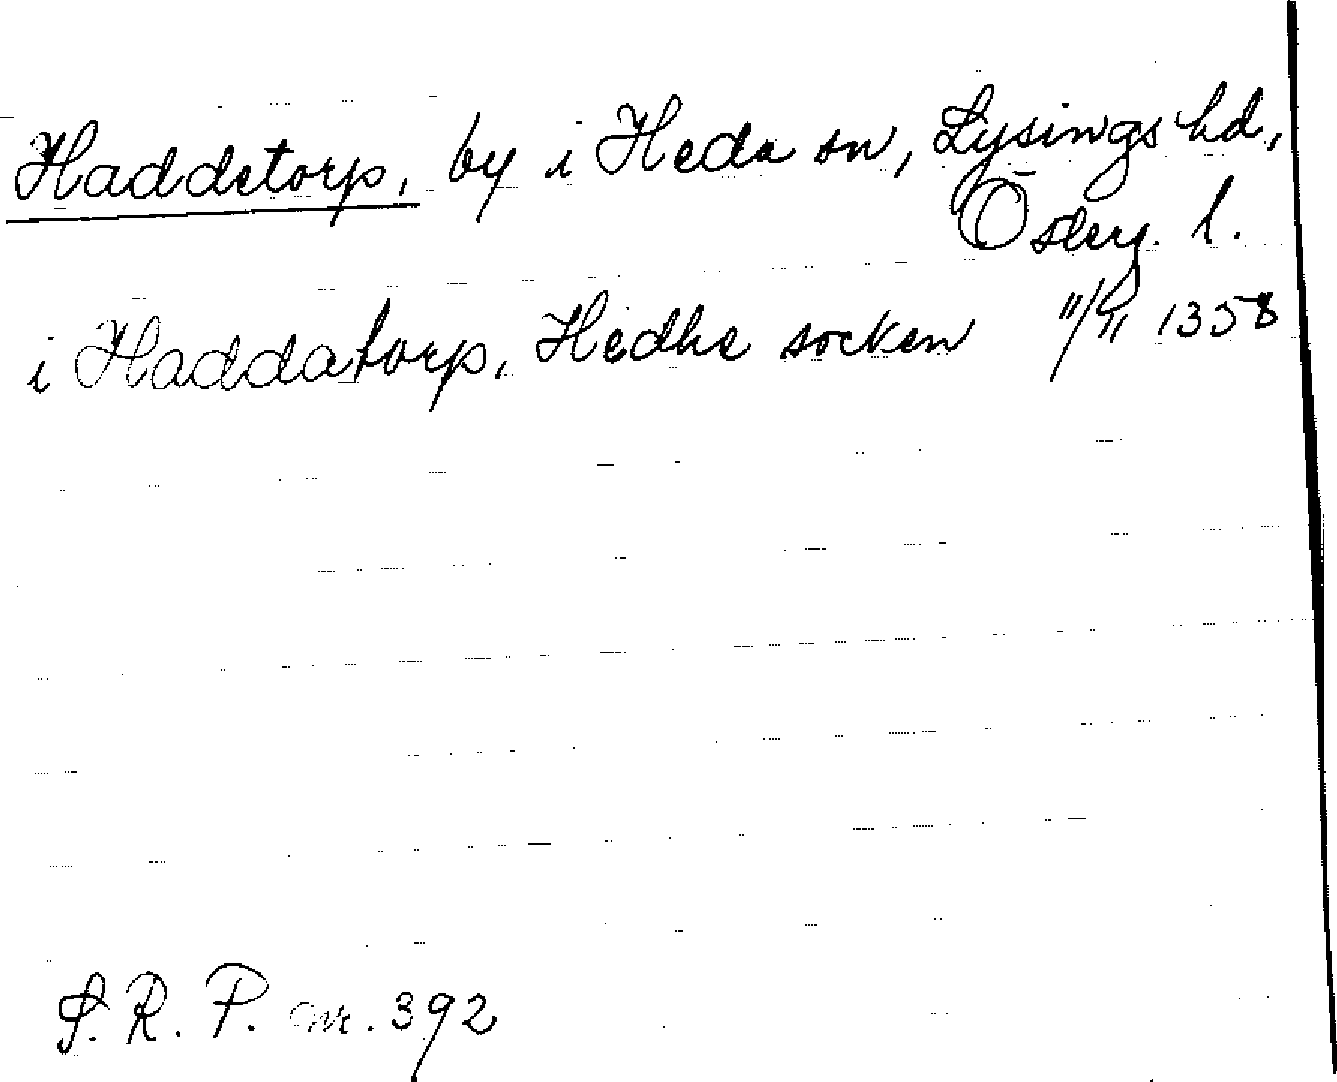 Haddetorp, by i Heda sn, Lysings hd,
Österg. l.
i Haddatorp, Hedhe socken 11/11 1358
S. R. P. nr. 392